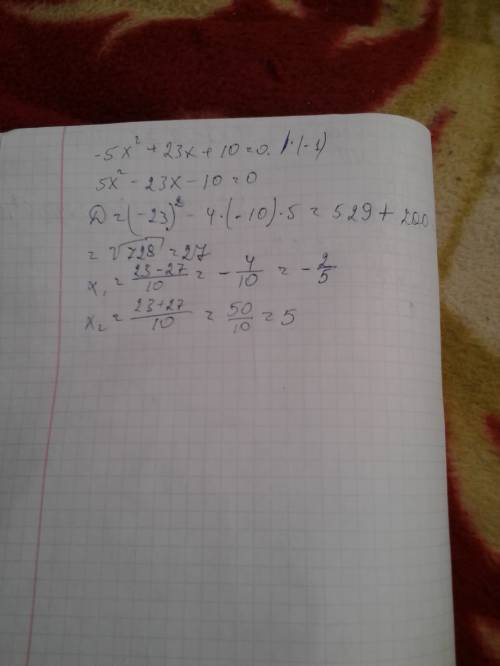 -5x² + 23x + 10 = 0. | · (-1)
5x² - 23x - 10 = 0
D = (-23)² - 4 · (-10) · 5 = 529 + 200
= √728 = 27
x₁ = (23-27)/10 = - 4/10 = - 2/5
x₂ = (23+27)/10 = 50/10 = 5